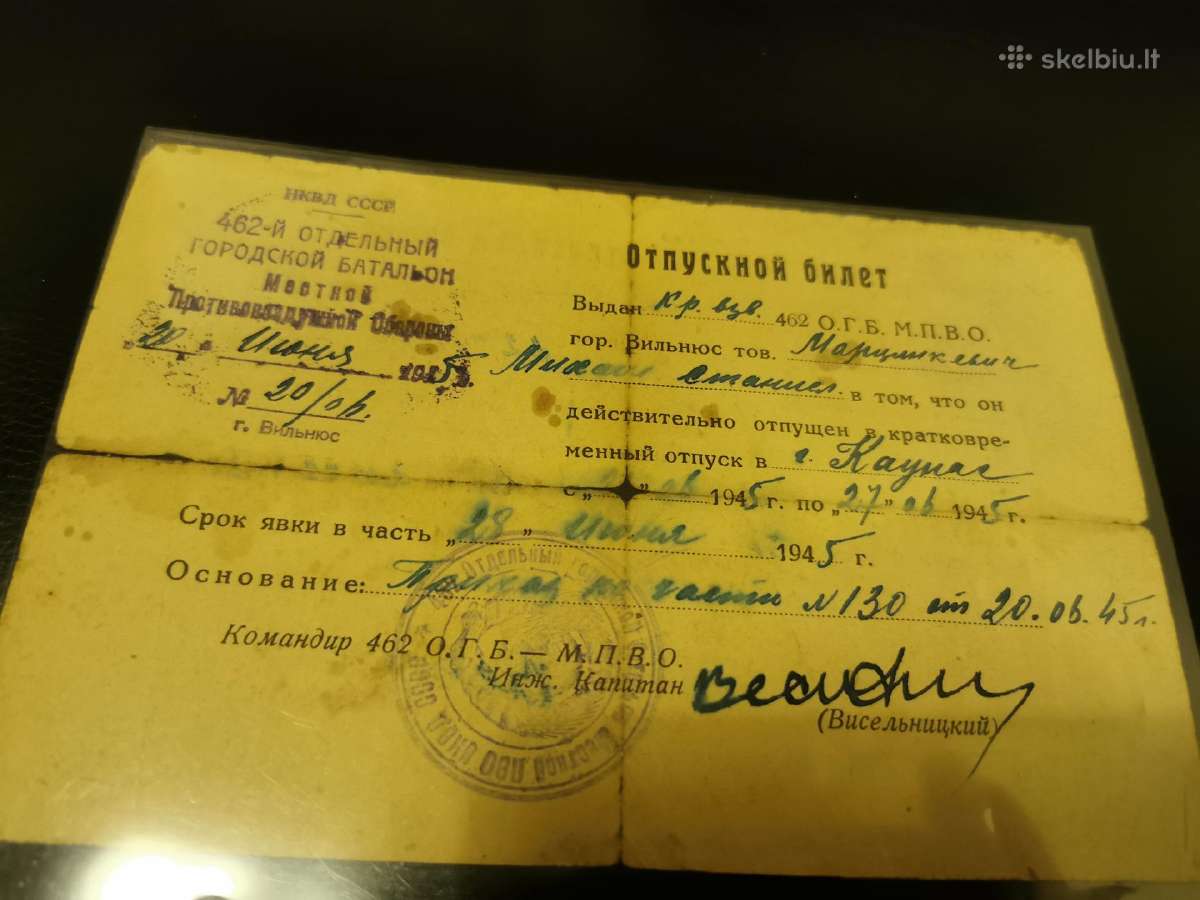 skelbiu.lt
НКВД СССР
462-Й ОТДЕЛЬНЫЙ
ГОРОДСКОЙ БАТАЛЬОН
Местной
Противовоздушной Обороны
„20" Июня 1945 г.
№ 20/06.
г. Вильнюс
Отпускной билет
Выдан кр. взв. 462 О.Г.Б. М.П.В.О.
гор. Вильнюс тов. Марцинкевич
Михаил Станисл. в том, что он
действительно отпущен в кратковре-
менный отпуск в г. Каунас
с „ " 06 1945 г. по „27" 06 1945 г.
Срок явки в часть „28" Июня 1945 г.
Основание: Приказ по части №130 от 20.06.45г.
Командир 462 О.Г.Б.— М.П.В.О.
Инж. Капитан
(Висельницкий)